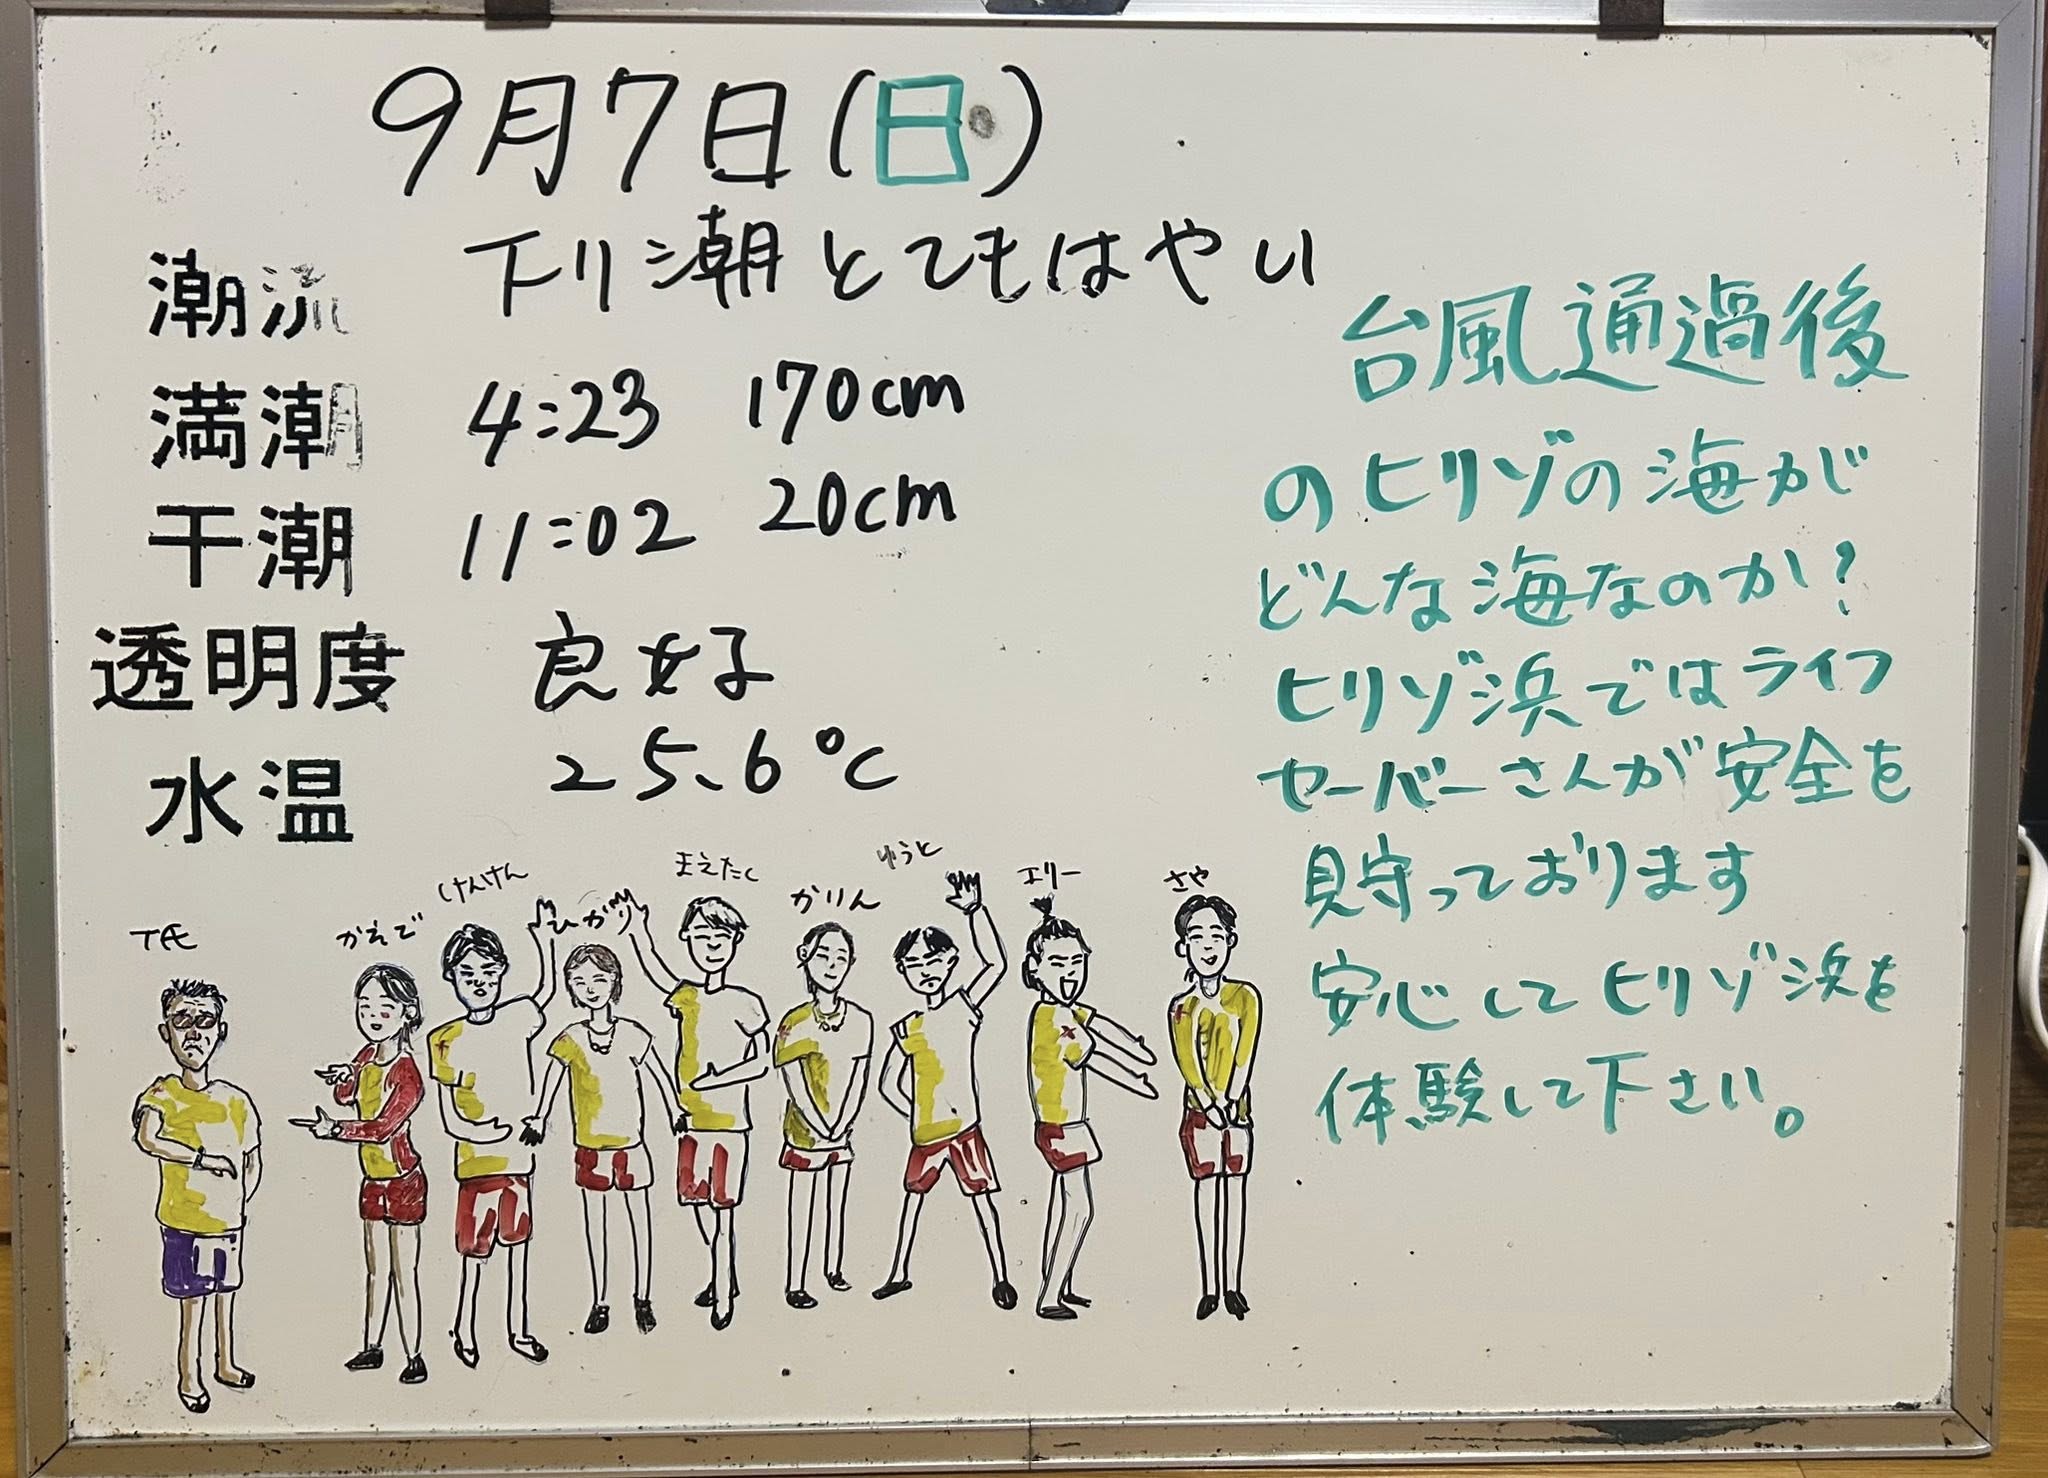 9月7日(日)
潮流 下り潮とてもはやい
満潮 4:23 170cm
干潮 11:02 20cm
透明度 良好
水温 25.6℃
台風通過後
のヒリゾの海がじ
どんな海なのか?
ヒリゾ浜ではライフ
セーバーさんが安全を
見守っております
安心してヒリゾ浜を
体験して下さい。
かえで
けんけん
ひかり
まえたく
かりん
ゆうと
エリー
さや